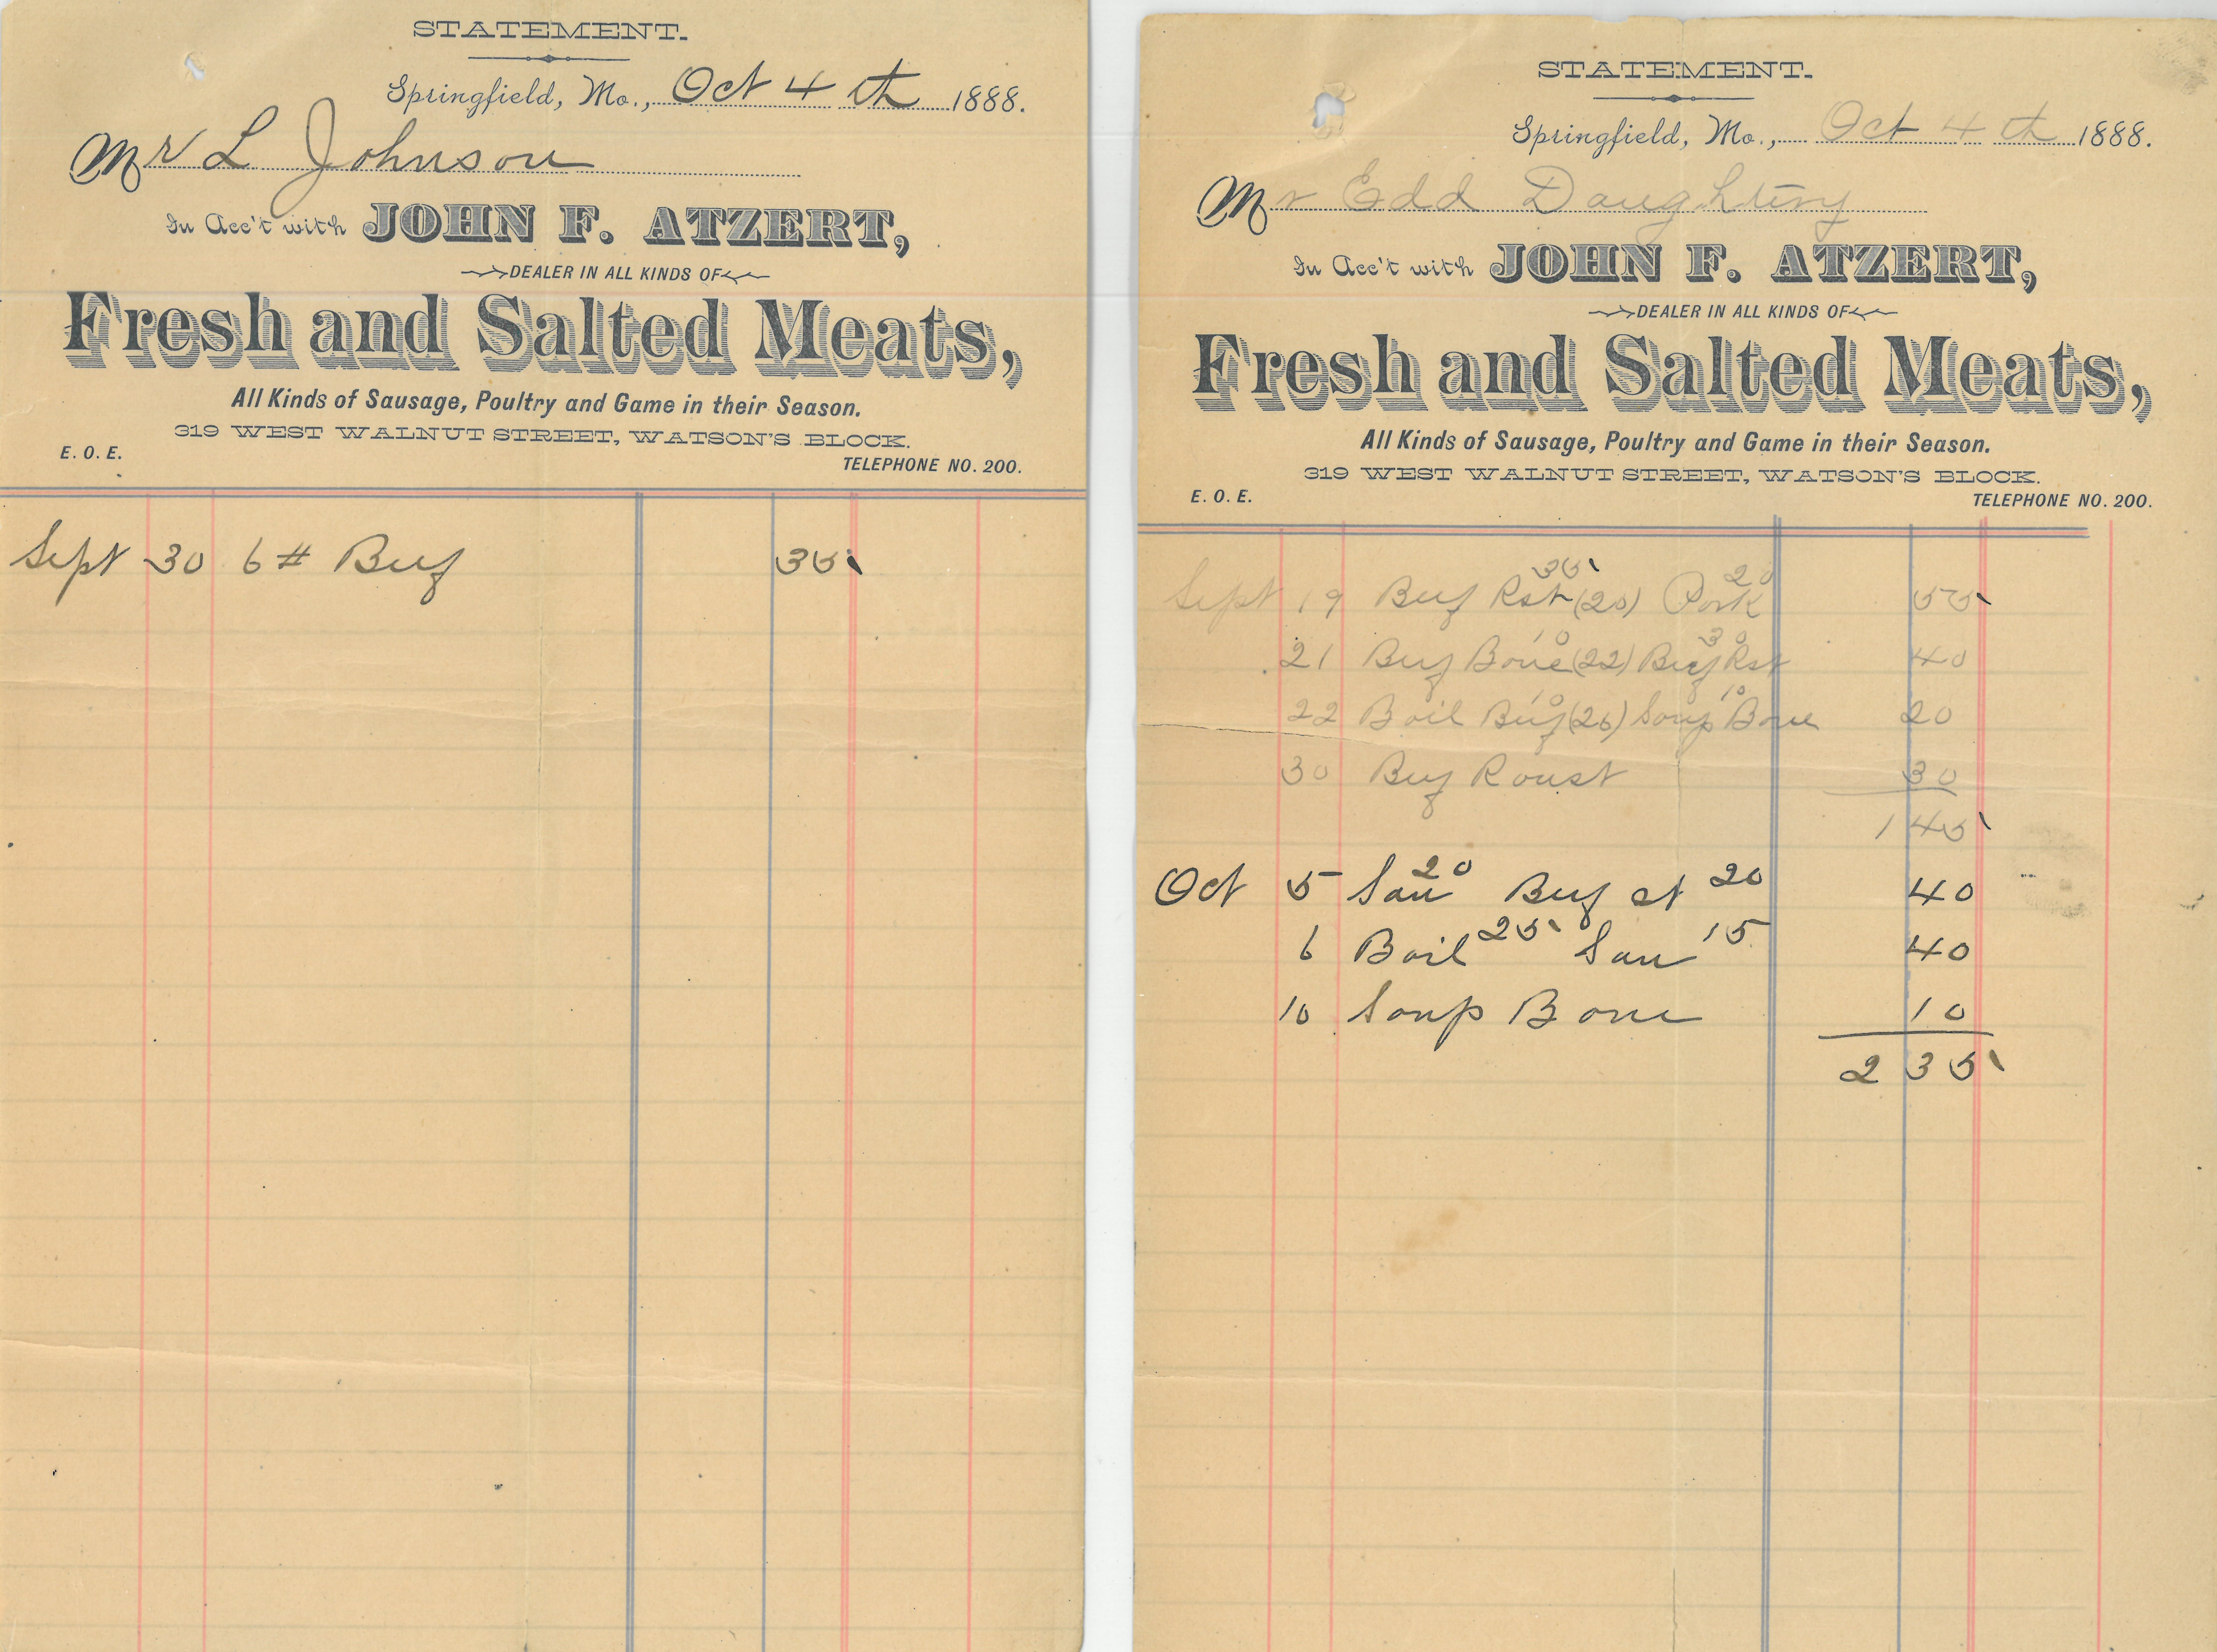 STATEMENT.
Springfield, Mo., Oct 4 th 1888.
Mr L Johnson
In Acc't with JOHN F. ATZERT,
DEALER IN ALL KINDS OF
Fresh and Salted Meats,
All Kinds of Sausage, Poultry and Game in their Season.
319 WEST WALNUT STREET, WATSON'S BLOCK.
E. O. E. TELEPHONE NO. 200.
Sept 30 6 # Beef 35
STATEMENT.
Springfield, Mo., Oct 4 th 1888.
Mr Edd Daughtery
In Acc't with JOHN F. ATZERT,
DEALER IN ALL KINDS OF
Fresh and Salted Meats,
All Kinds of Sausage, Poultry and Game in their Season.
319 WEST WALNUT STREET, WATSON'S BLOCK.
E. O. E. TELEPHONE NO. 200.
Sept 19 Beef Rst 35 (20) Pork 20 55
21 Beef Bone 10 (22) Beef Rst 30 40
22 Boil Beef 10 (26) Soup Bone 10 20
30 Beef Roast 30
1 45
Oct 5 Sau 20 Beef st 20 40
6 Boil 25 Sau 15 40
10 Soup Bone 10
2 35